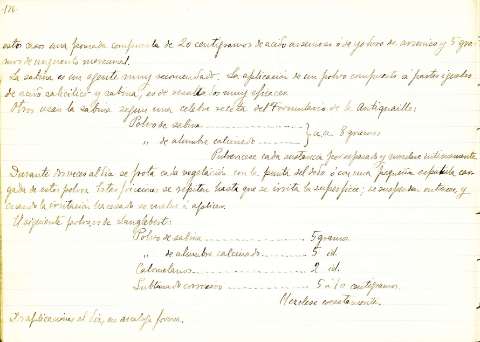 176
estos casos una pomada compuesta de 20 centigramos de acido arsenioso ó de yoduro de arsenico y 5 gra-
mos de unguento mercurial.
La sabina es un agente muy recomendado. La aplicacion de un polvo compuesto á partes iguales
de acido salicilico y sabina, es de resultados muy eficaces.
Otros usan la sabina segun una celebre receta del Formulario de la Antiquaille:
Polvo de sabina
" de alumbre calcinado } a.a. 8 gramos
Pulvericese cada sustancia por separado y mezclese intimamente
Durante dos veces al dia se frota cada vegetación con la punta del dedo ó con una pequeña espatula car-
gada de estos polvos. Estas fricciones se repiten hasta que se irrita la superficie; se suspenden entonces, y
cuando la irritacion ha cesado se vuelve á aplicar.
El siguiente polvo es de Langlebert:
Polvo de sabina 5 gramos
" de alumbre calcinado 5 id.
Calomelanos 2 id.
Sublimado corrosivo 5 á 10 centigramos
Mezclese exactamente.
aplicaciones al dia, en analoga forma.